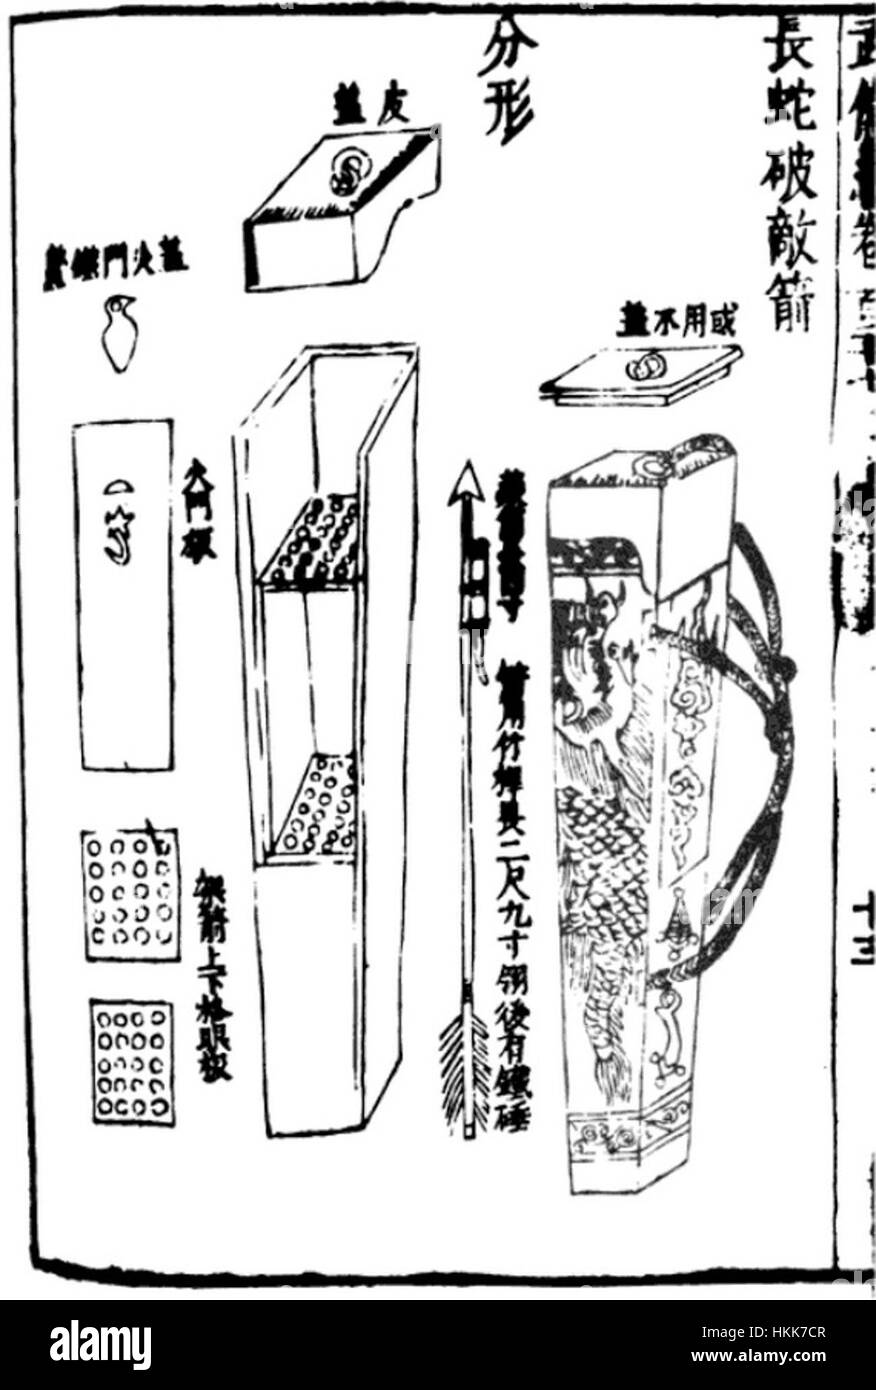 長蛇破敵箭
分形
皮蓋
或用不蓋
蓋火門
火門板
箭用竹桿長二尺九寸翎後有鐵硾
架箭上下格眼板
alamy
Image ID: HKK7CR
www.alamy.com